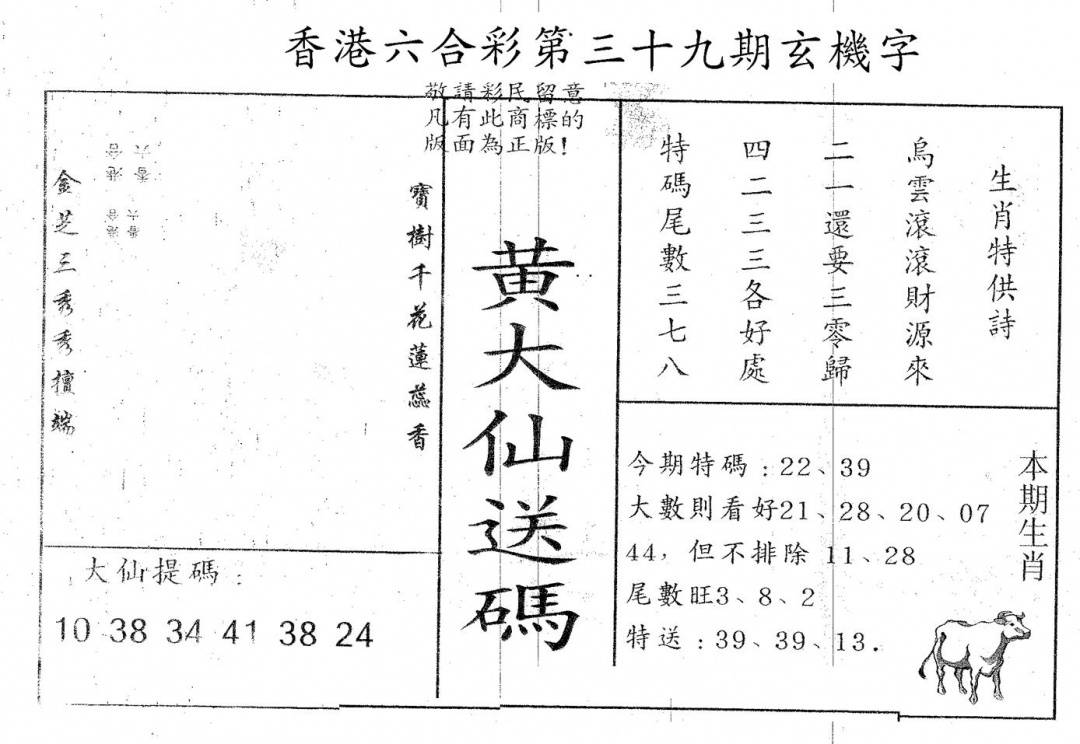 香港六合彩第三十九期玄機字
敬請彩民留意
凡有此商標的
版面為正版!
生肖特供詩
烏雲滾滾財源來
二一還要三零歸
四二三三各好處
特碼尾數三七八
黃大仙送碼
寶樹千花蓮蕊香
金芝三秀秀擅端
香港
六合
本期生肖
今期特碼:22、39
大數則看好21、28、20、07
44,但不排除 11、28
尾數旺3、8、2
特送:39、39、13.
大仙提碼:
10 38 34 41 38 24